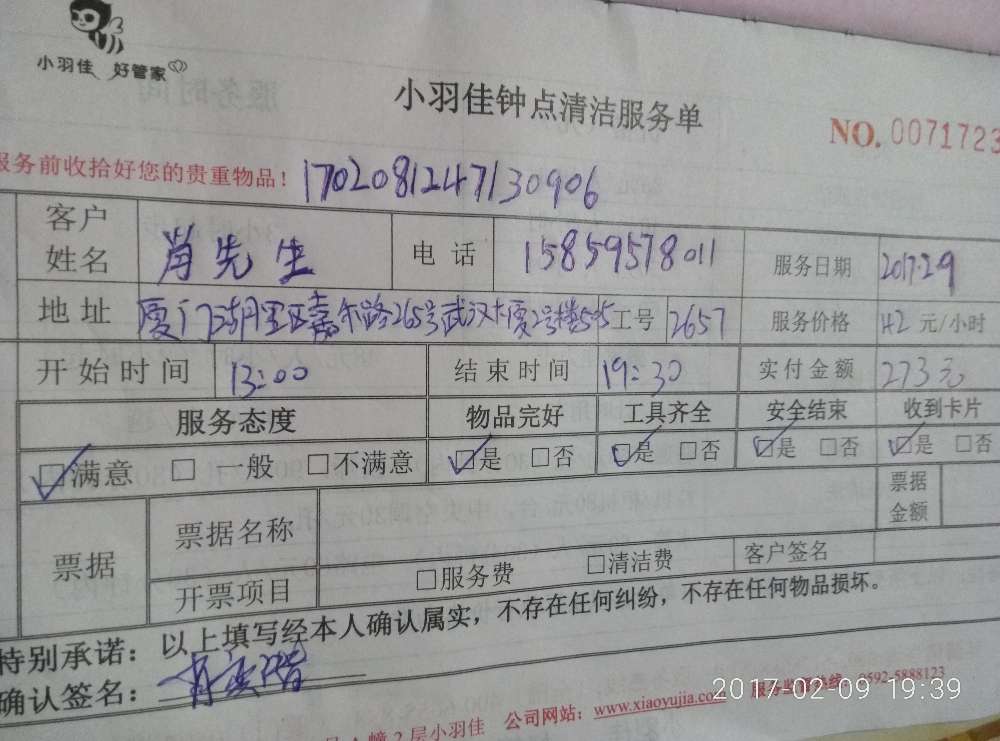 小羽佳 好管家
小羽佳钟点清洁服务单
NO. 0071723
服务前收拾好您的贵重物品！ 1702081247130906
客户姓名 肖先生 电话 15859578011 服务日期 2017.2.9
地址 厦门湖里区嘉禾路265号武汉大厦2号楼 工号 2657 服务价格 42 元/小时
开始时间 13:00 结束时间 19:30 实付金额 273元
服务态度 物品完好 工具齐全 安全结束 收到卡片
☑满意 □一般 □不满意 ☑是 □否 ☑是 □否 ☑是 □否 ☑是 □否
票据 票据名称 票据金额
开票项目 □服务费 □清洁费 客户签名
特别承诺：以上填写经本人确认属实，不存在任何纠纷，不存在任何物品损坏。
确认签名：
幢2层小羽佳 公司网站：www.xiaoyujia.com 服务监督热线：0592-5888123
2017-02-09 19:39